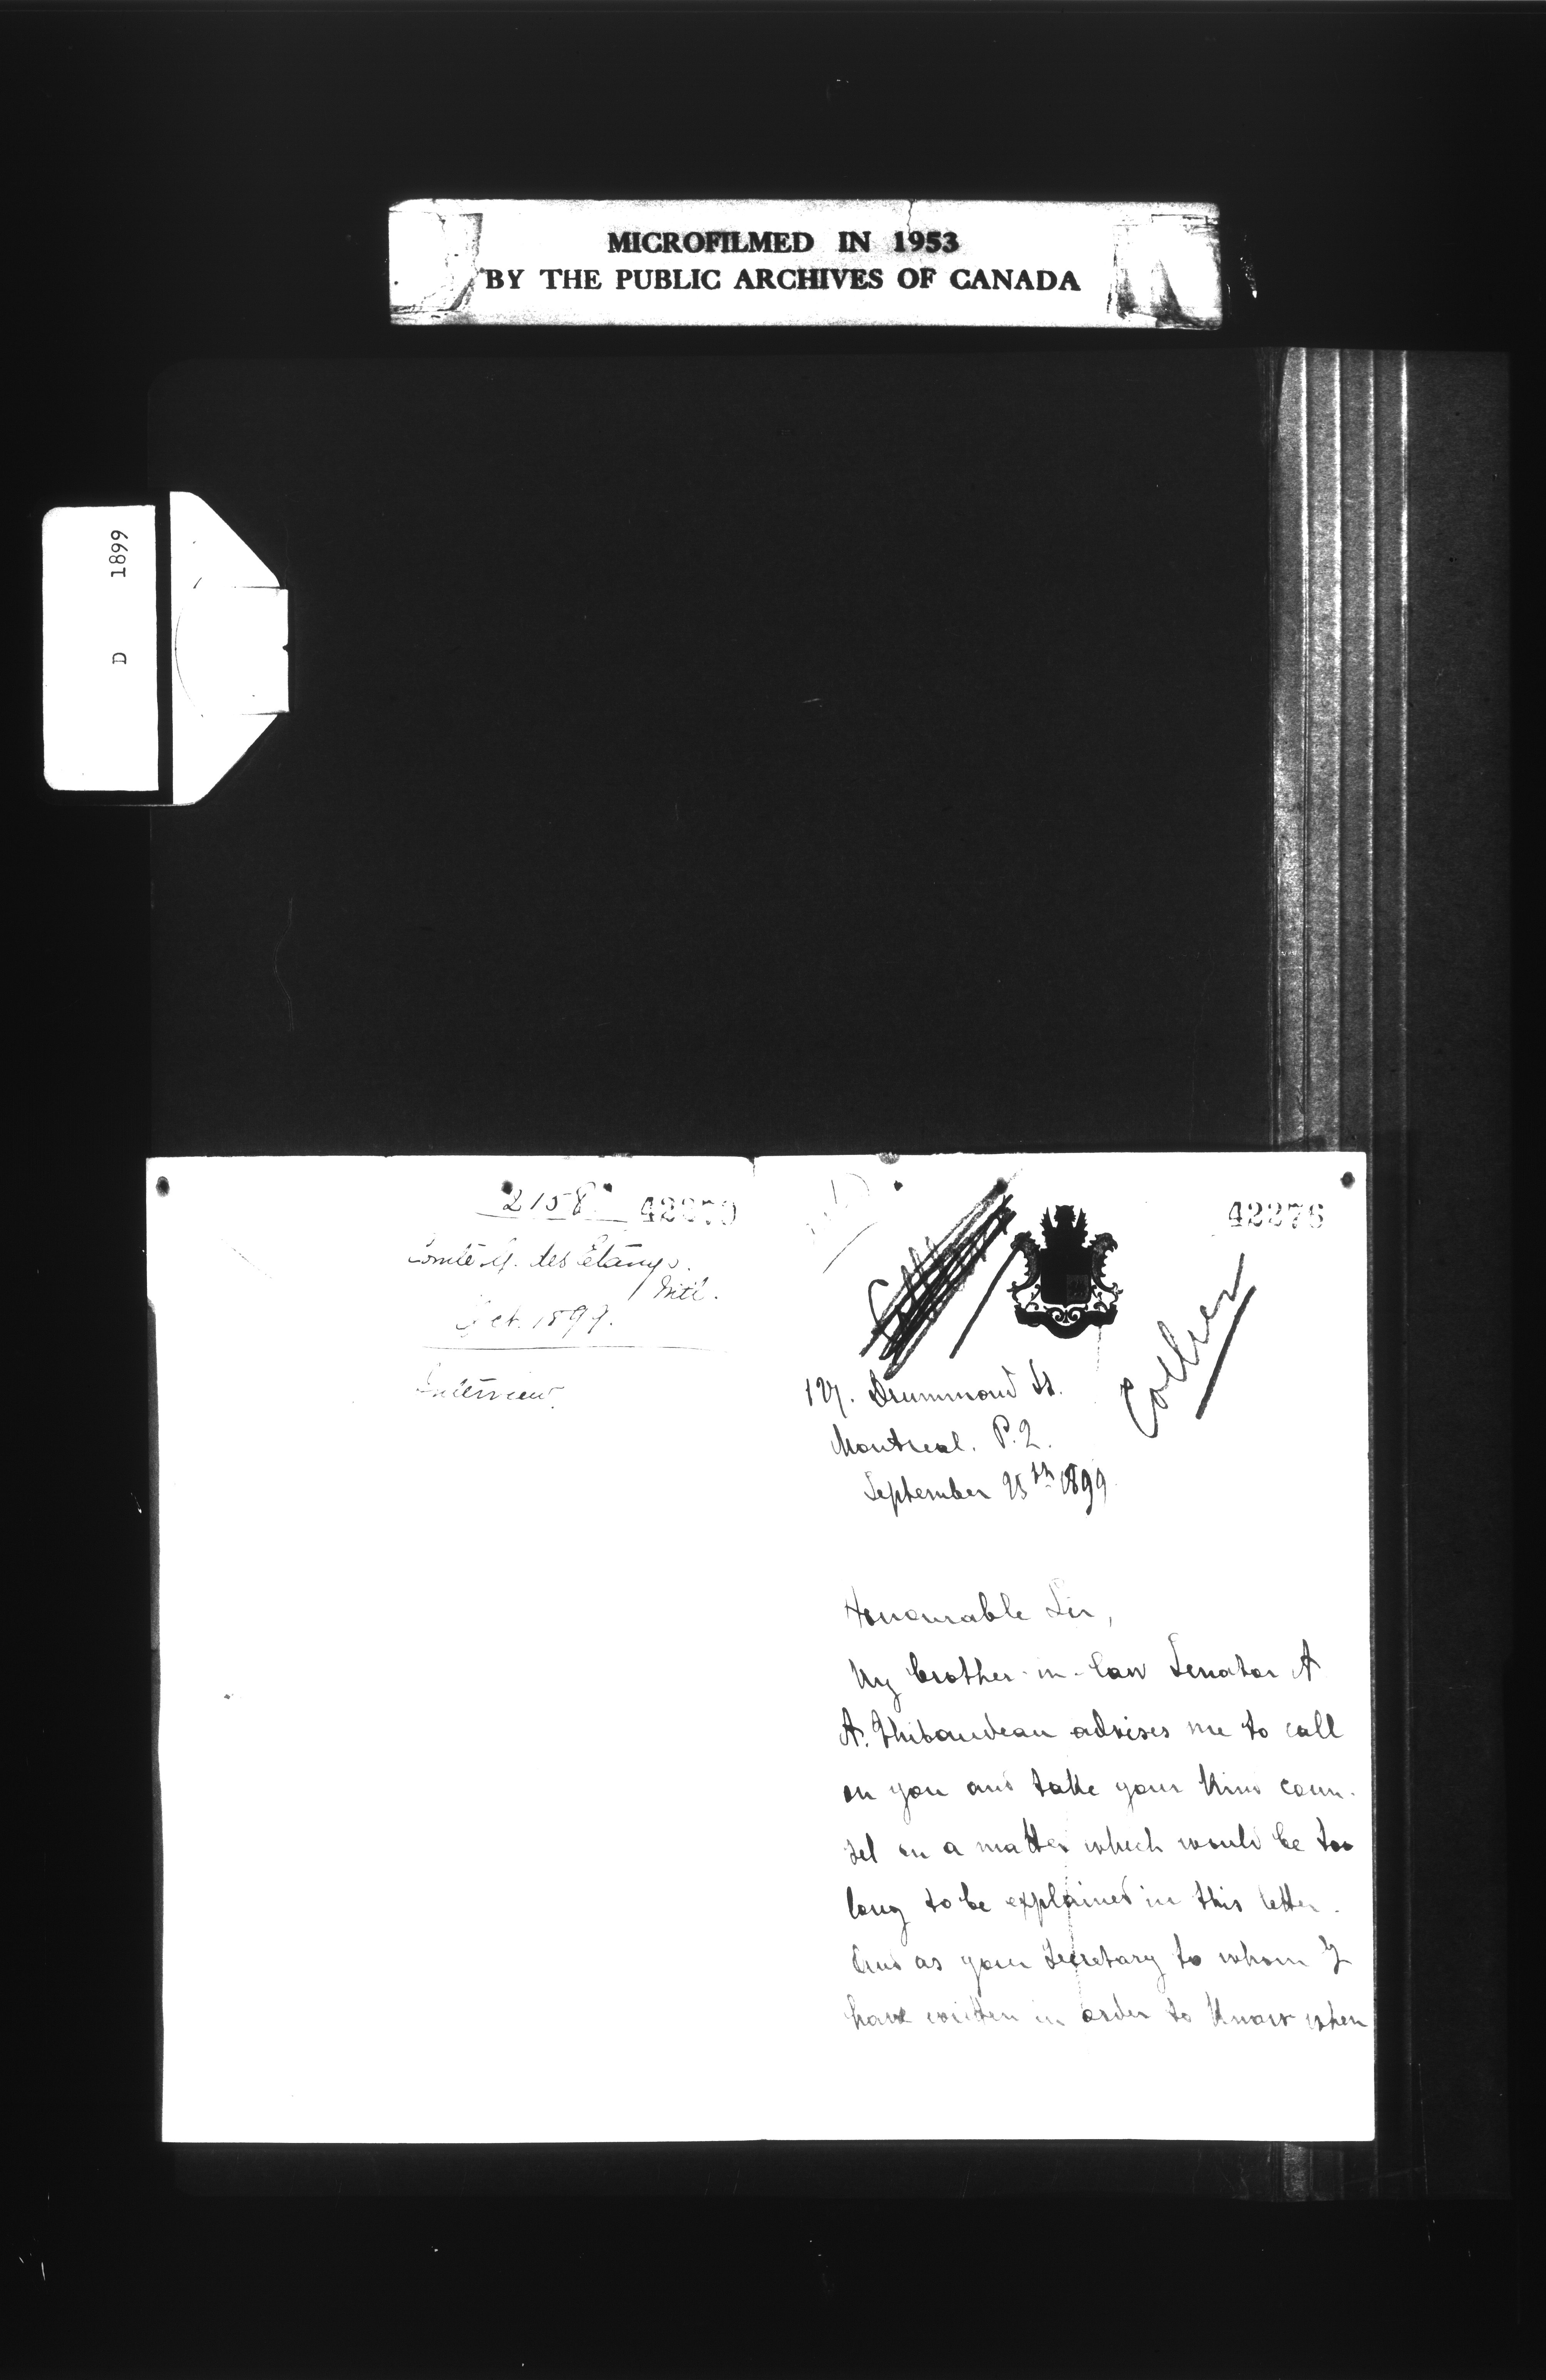 MICROFILMED IN 1953
BY THE PUBLIC ARCHIVES OF CANADA
D 1899
2158
Comte G. des Etangs.
Mtl.
Oct. 1899.
Interview.
42276
127. Drummond St.
Montreal. P.Q.
September 25th 1899
Honourable Sir,
My brother-in-law Senator A
A. Thibaudeau advises me to call
on you and take your kind coun-
sel on a matter which would be too
long to be explained in this letter.
And as your Secretary to whom I
have written in order to know when